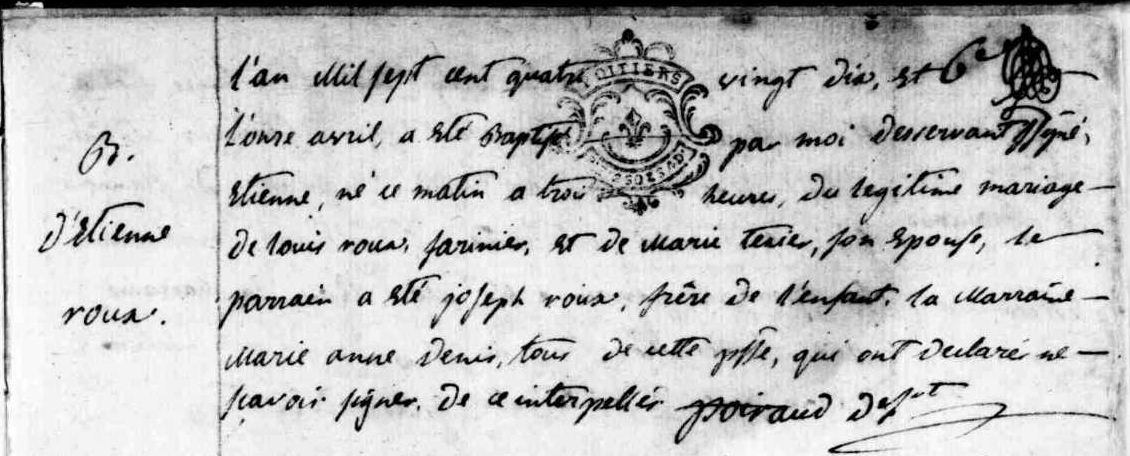 l'an Mil sept cent quatre vingt dix, et 6e
B. l'onse avril, a été Baptisé par moi desservant ssigné,
Etienne, né ce matin a trois heures, du legitime mariage
d'Etienne de louis roux, farinier, et de Marie texier, son epouse, le
roux. parrain a eté joseph roux, frère de l'enfant. la Marraine
Marie anne Denis, tous de cette psse, qui ont declaré ne
sçavoir signer. de ce interpellés Poiraud desst
POITIERS